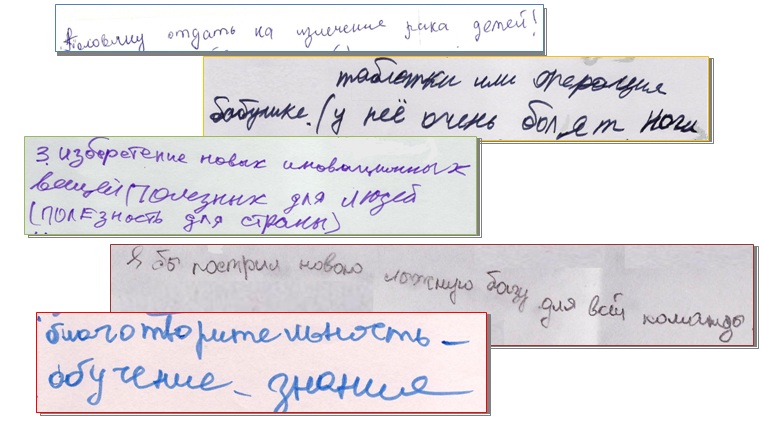 Половину отдать на излечение рака детей!
таблетки или операция
бабушке. (у неё очень болят ноги
3. изобретение новых иновационных
вещей (полезных для людей
(полезность для страны)
Я бы построил новою лыжную базу для всей команды
благотворительность –
обучение – знания